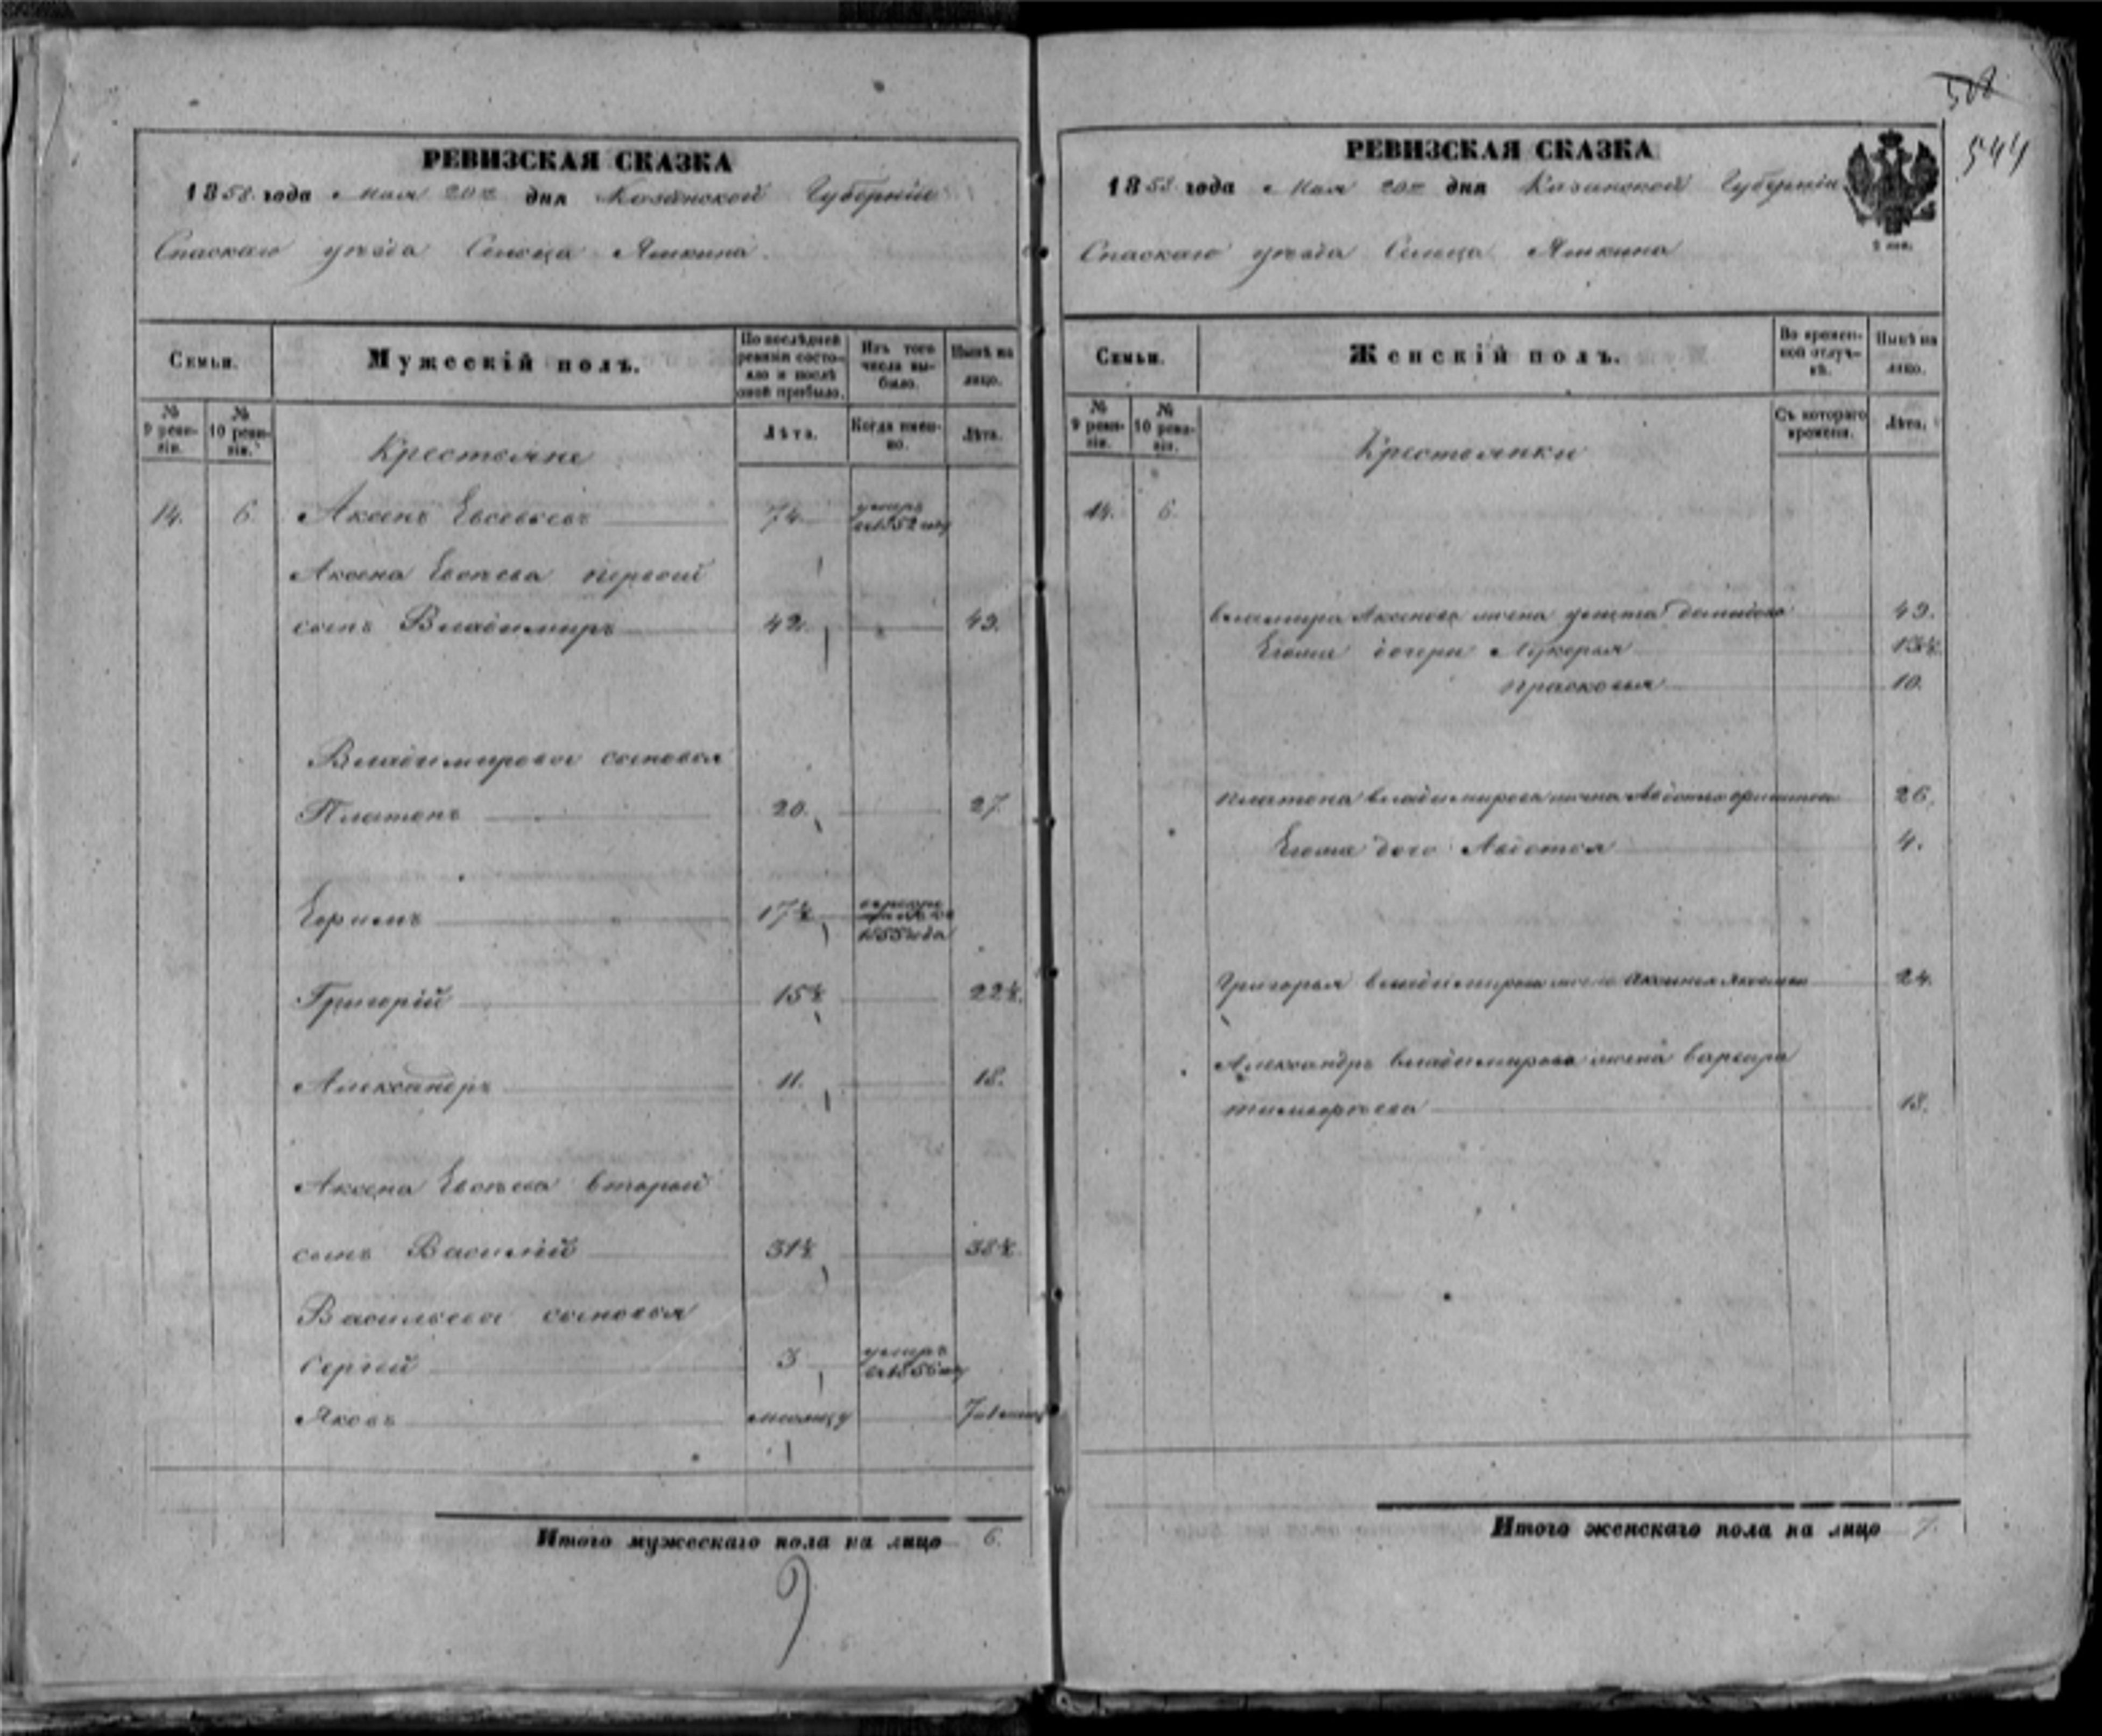 РЕВИЗСКАЯ СКАЗКА
1858 года Мая 20го дня Казанской Губернии
Спаскаго уезда Сельца Яшкина.
Семьи.
Мужескій полъ.
По послѣдней ревизіи состояло и послѣ оной прибыло.
Изъ того числа выбыло.
Нынѣ на лицо.
№ 9 ревизіи.
№ 10 ревизіи.
Крестьяне
Лѣта.
Когда именно.
Лѣта.
14. 6. Аксенъ Евсевьевъ 74 умеръ в 1852 году
Аксена Евсѣева первой
сынъ Владимиръ 42 49.
Владимировы сыновья
Платонъ 20. 27.
Ефимъ 17½ 1855 года
Григорій 15½ 22½.
Александръ 11. 18.
Аксена Евсѣева второй
сынъ Василій 31½ 38½
Васильевы сыновья
Сергей 3 умеръ в 1856 году
Яковъ месяцу
Итого мужескаго пола на лицо 6.
9
508
544
РЕВИЗСКАЯ СКАЗКА
1858 года Мая 20го дня Казанской Губерніи
Спаскаго уезда Сельца Яшкина
Семьи.
Женскій полъ.
Во временной отлучкѣ.
Нынѣ на лицо.
№ 9 ревизіи.
№ 10 ревизіи.
Крестьянки
Съ котораго времени.
Лѣта.
14. 6.
Аксенова жена 49.
Егоже дочери Лукерья 13½.
Прасковья 10.
Платона Владимирова жена Авдотья 26.
Егоже дочь Авдотья 4.
Григорья Владимирова жена Аксинья 24.
Александръ Владимирова жена Варвара
Тимофѣева 18.
Итого женскаго пола на лицо 7.